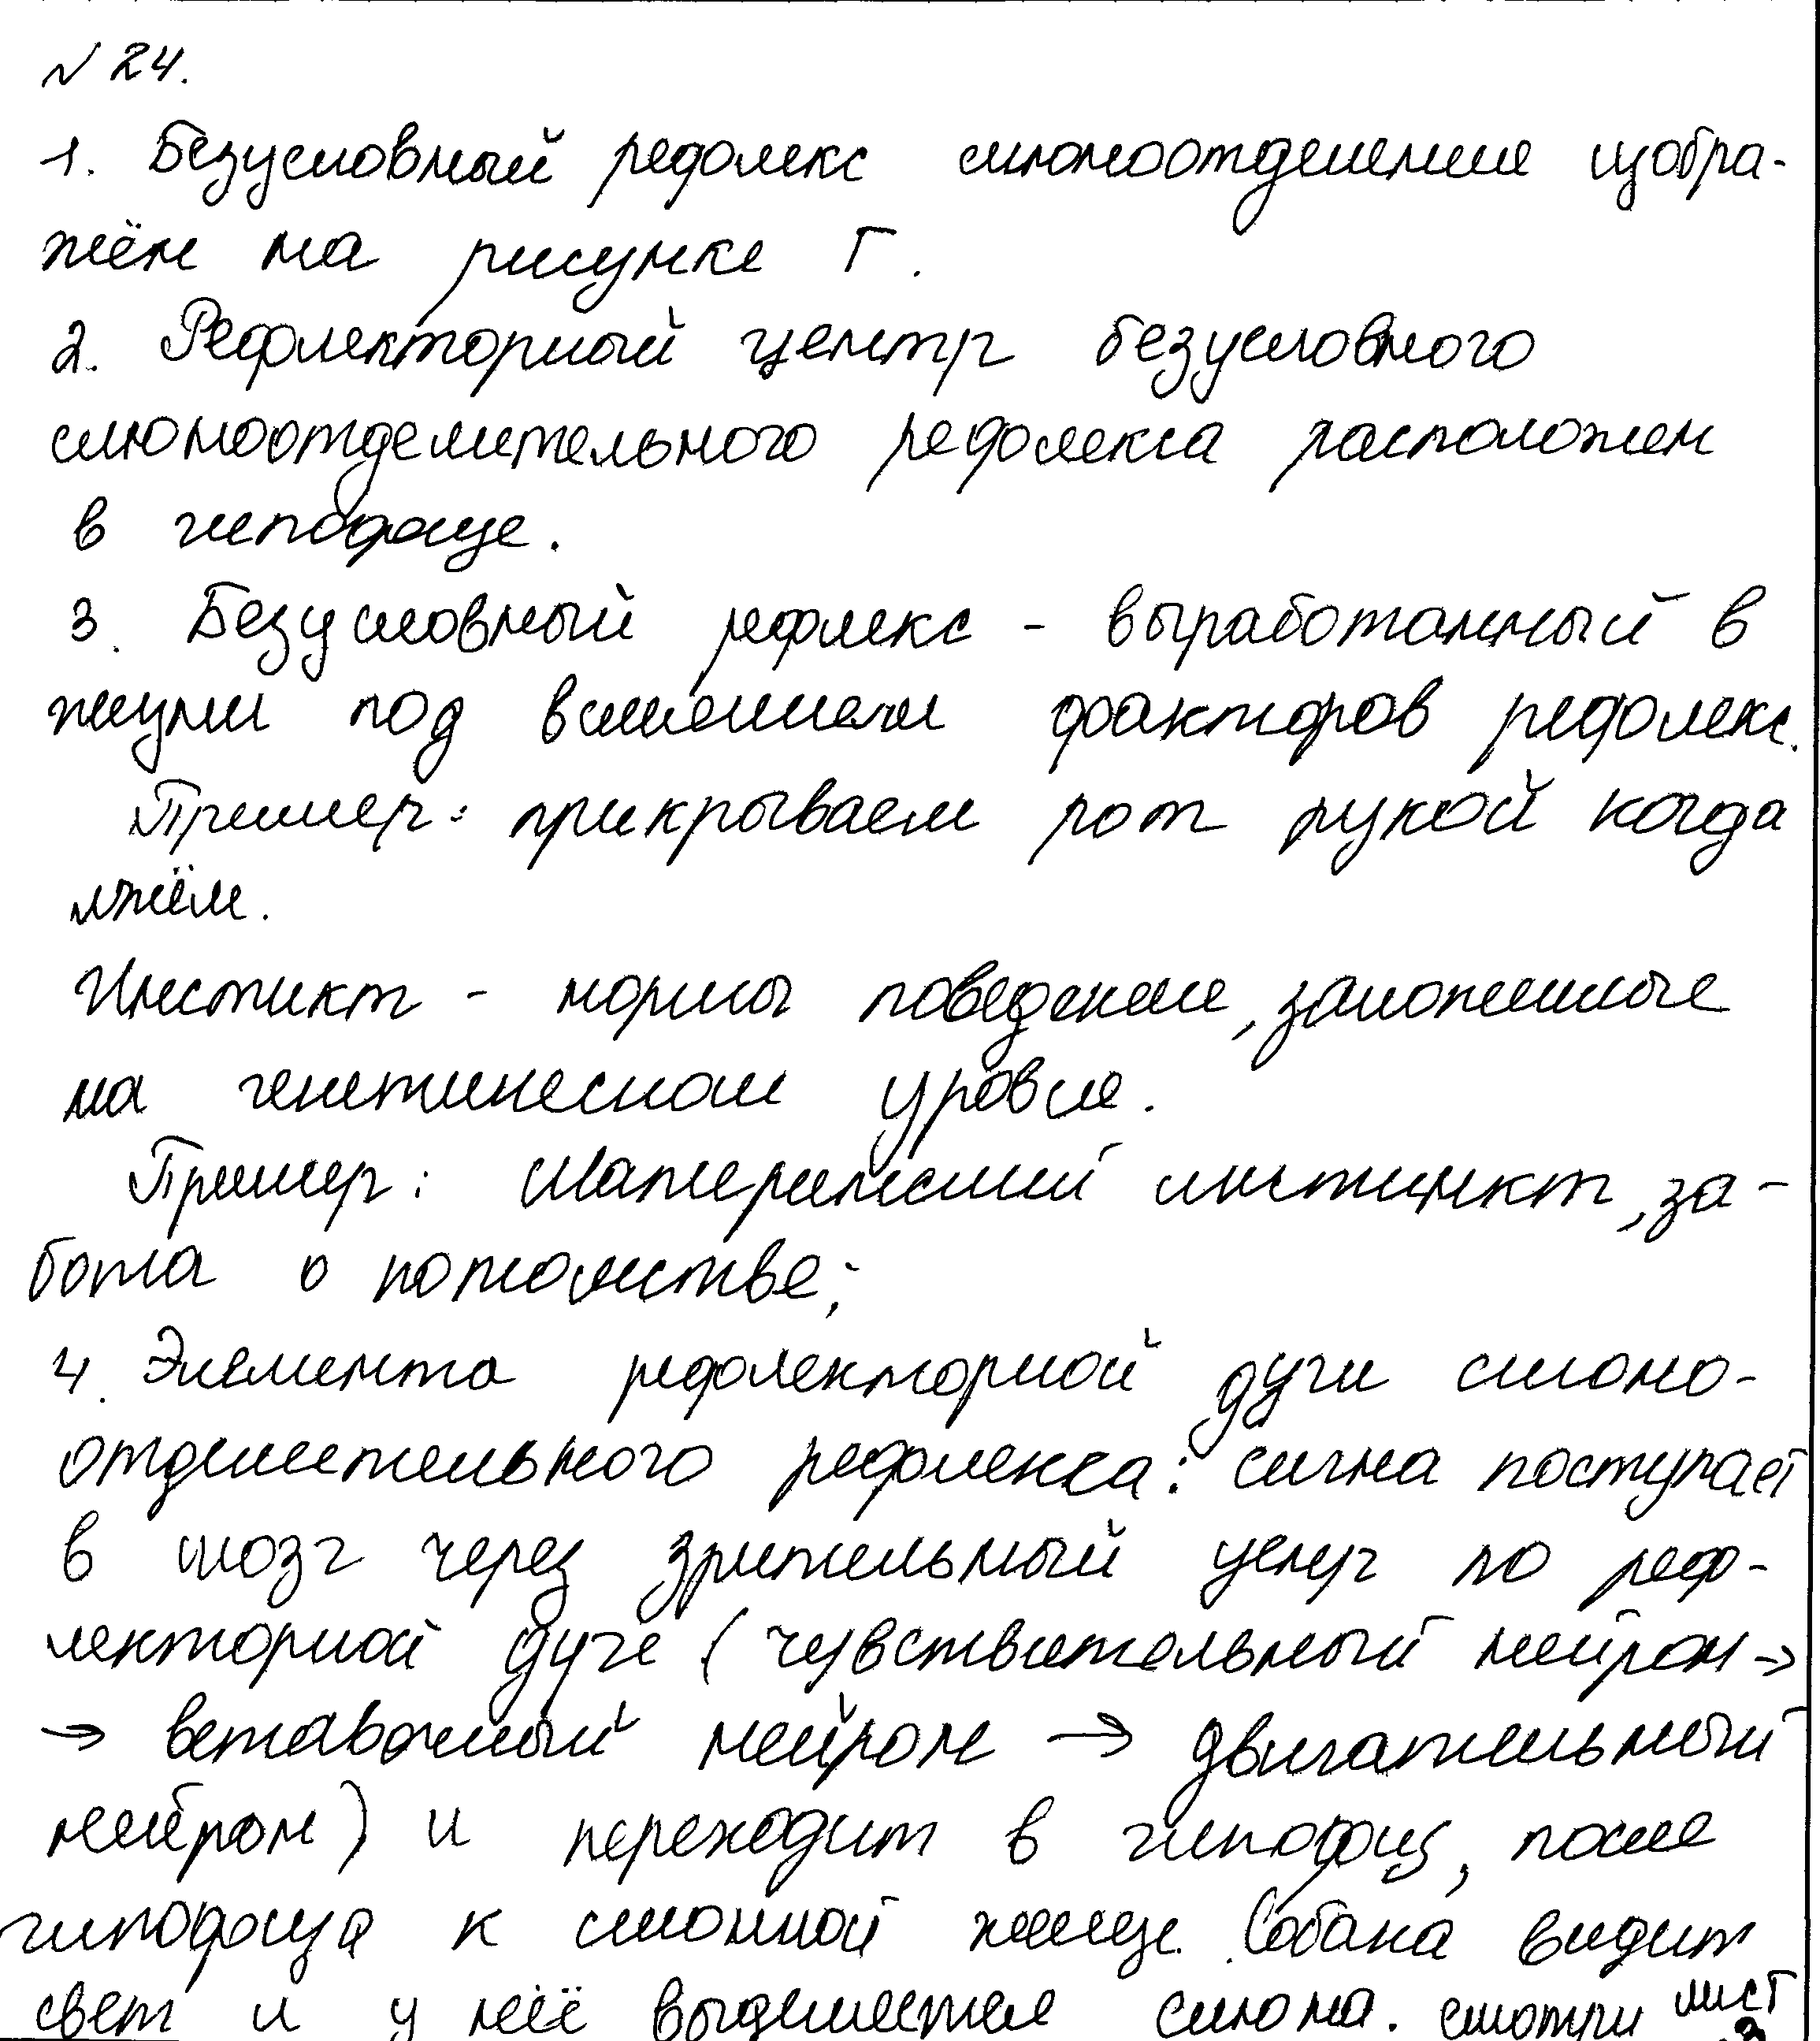 № 24.
1. Безусловный рефлекс слюноотделение изобра-
жён на рисунке Г.
2. Рефлекторный центр безусловного
слюноотделительного рефлекса расположен
в гипофизе.
3. Безусловный рефлекс - выработанный в
жизни под влиянием факторов рефлекс.
Пример: прикрываем рот рукой когда
лжём.
Инстикт - нормы поведения, заложенные
на генетическом уровне.
Пример: Материнский инстинкт, за-
бота о потомстве;
4. Элемента рефлекторной дуги слюно-
отделительного рефлекса: сигна поступает
в мозг через зрительный ценр по реф-
лекторной дуге (чувствительный нейрон →
→ вставочный нейрон → двигательный
нейрон) и переходит в гипофиз, после
гипофиза к слюнной железе. Собака видит
свет и у неё выделяется слюна. смотри лист
3